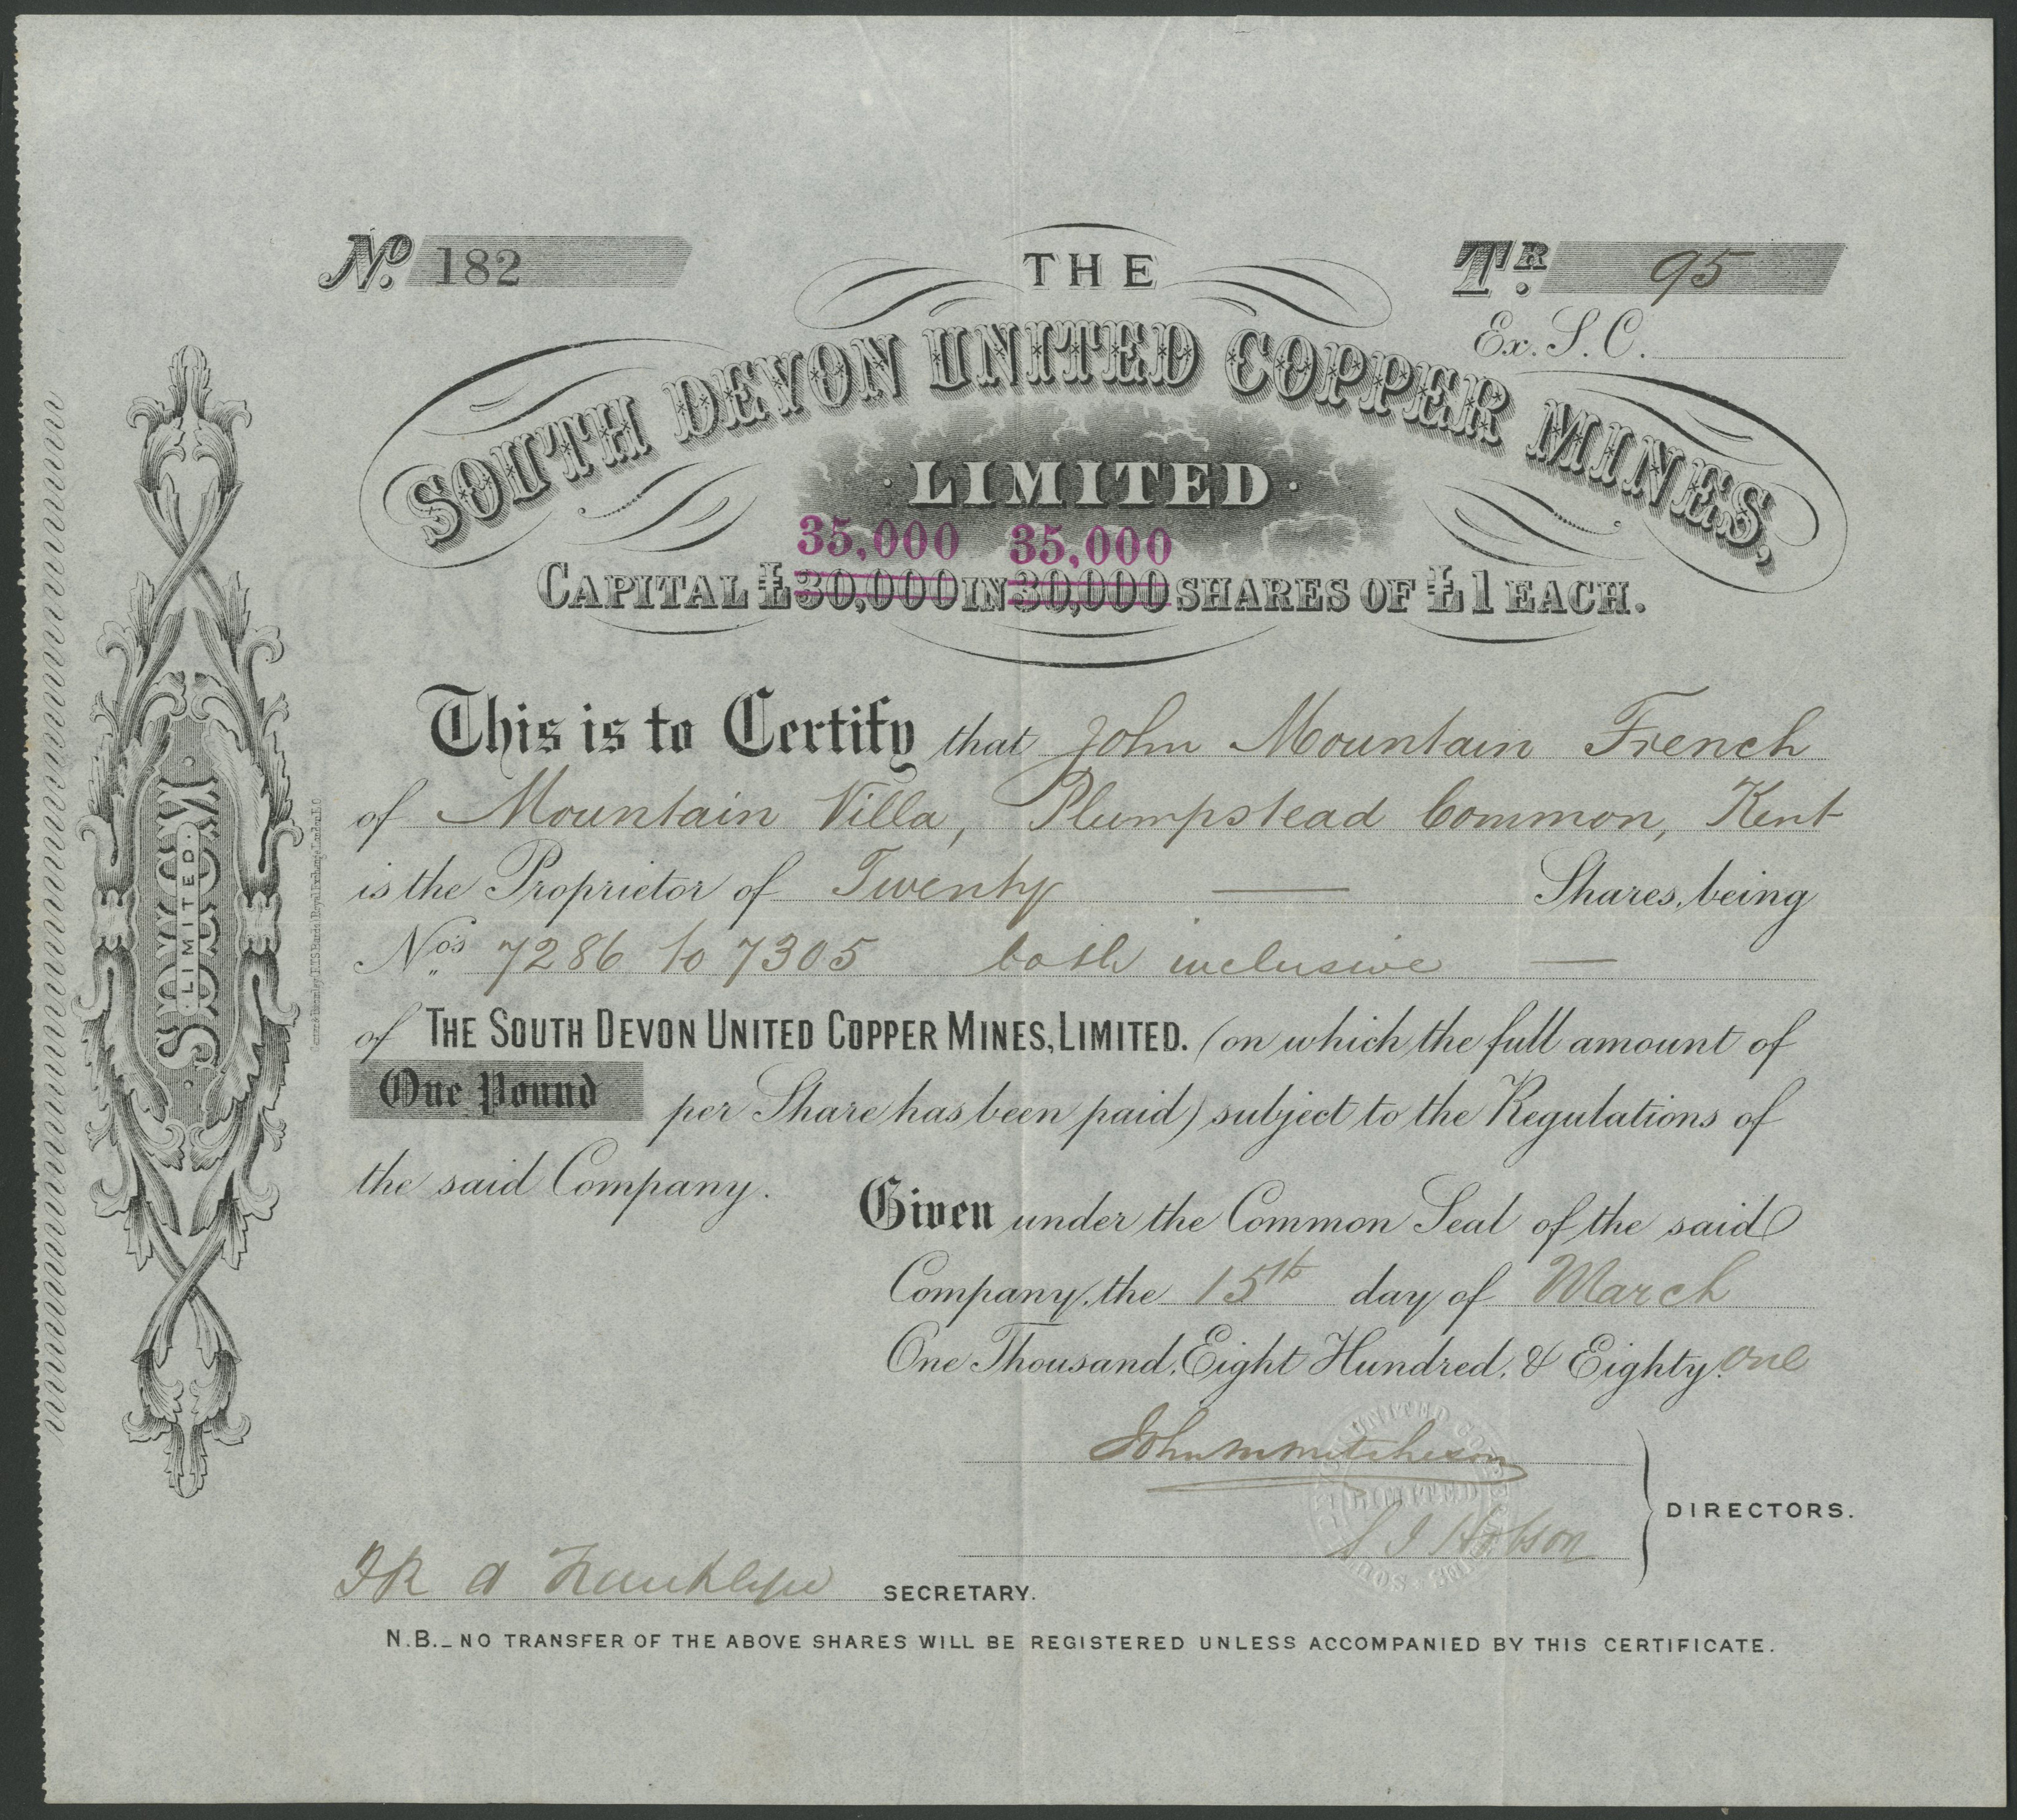 No. 182
THE
TR. 95
Ex. S. C.
SOUTH DEVON UNITED COPPER MINES,
· LIMITED ·
35,000 35,000
CAPITAL £30,000 IN 30,000 SHARES OF £1 EACH.
This is to Certify that John Mountain French
of Mountain Villa, Plumpstead Common, Kent
is the Proprietor of Twenty — Shares, being
Nos 7286 to 7305 both inclusive —
of THE SOUTH DEVON UNITED COPPER MINES, LIMITED. (on which the full amount of
One Pound per Share has been paid) subject to the Regulations of
the said Company.
Given under the Common Seal of the said
Company, the 15th day of March
One Thousand, Eight Hundred, & Eighty one
John M Mitcheson
S J Hobson
DIRECTORS.
SECRETARY.
N.B._NO TRANSFER OF THE ABOVE SHARES WILL BE REGISTERED UNLESS ACCOMPANIED BY THIS CERTIFICATE.
LIMITED.
UNITED
LIMITED